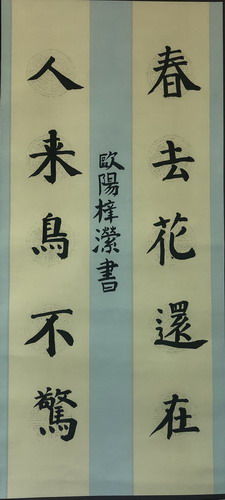 春去花還在
人来鳥不驚
歐陽梓瀠書